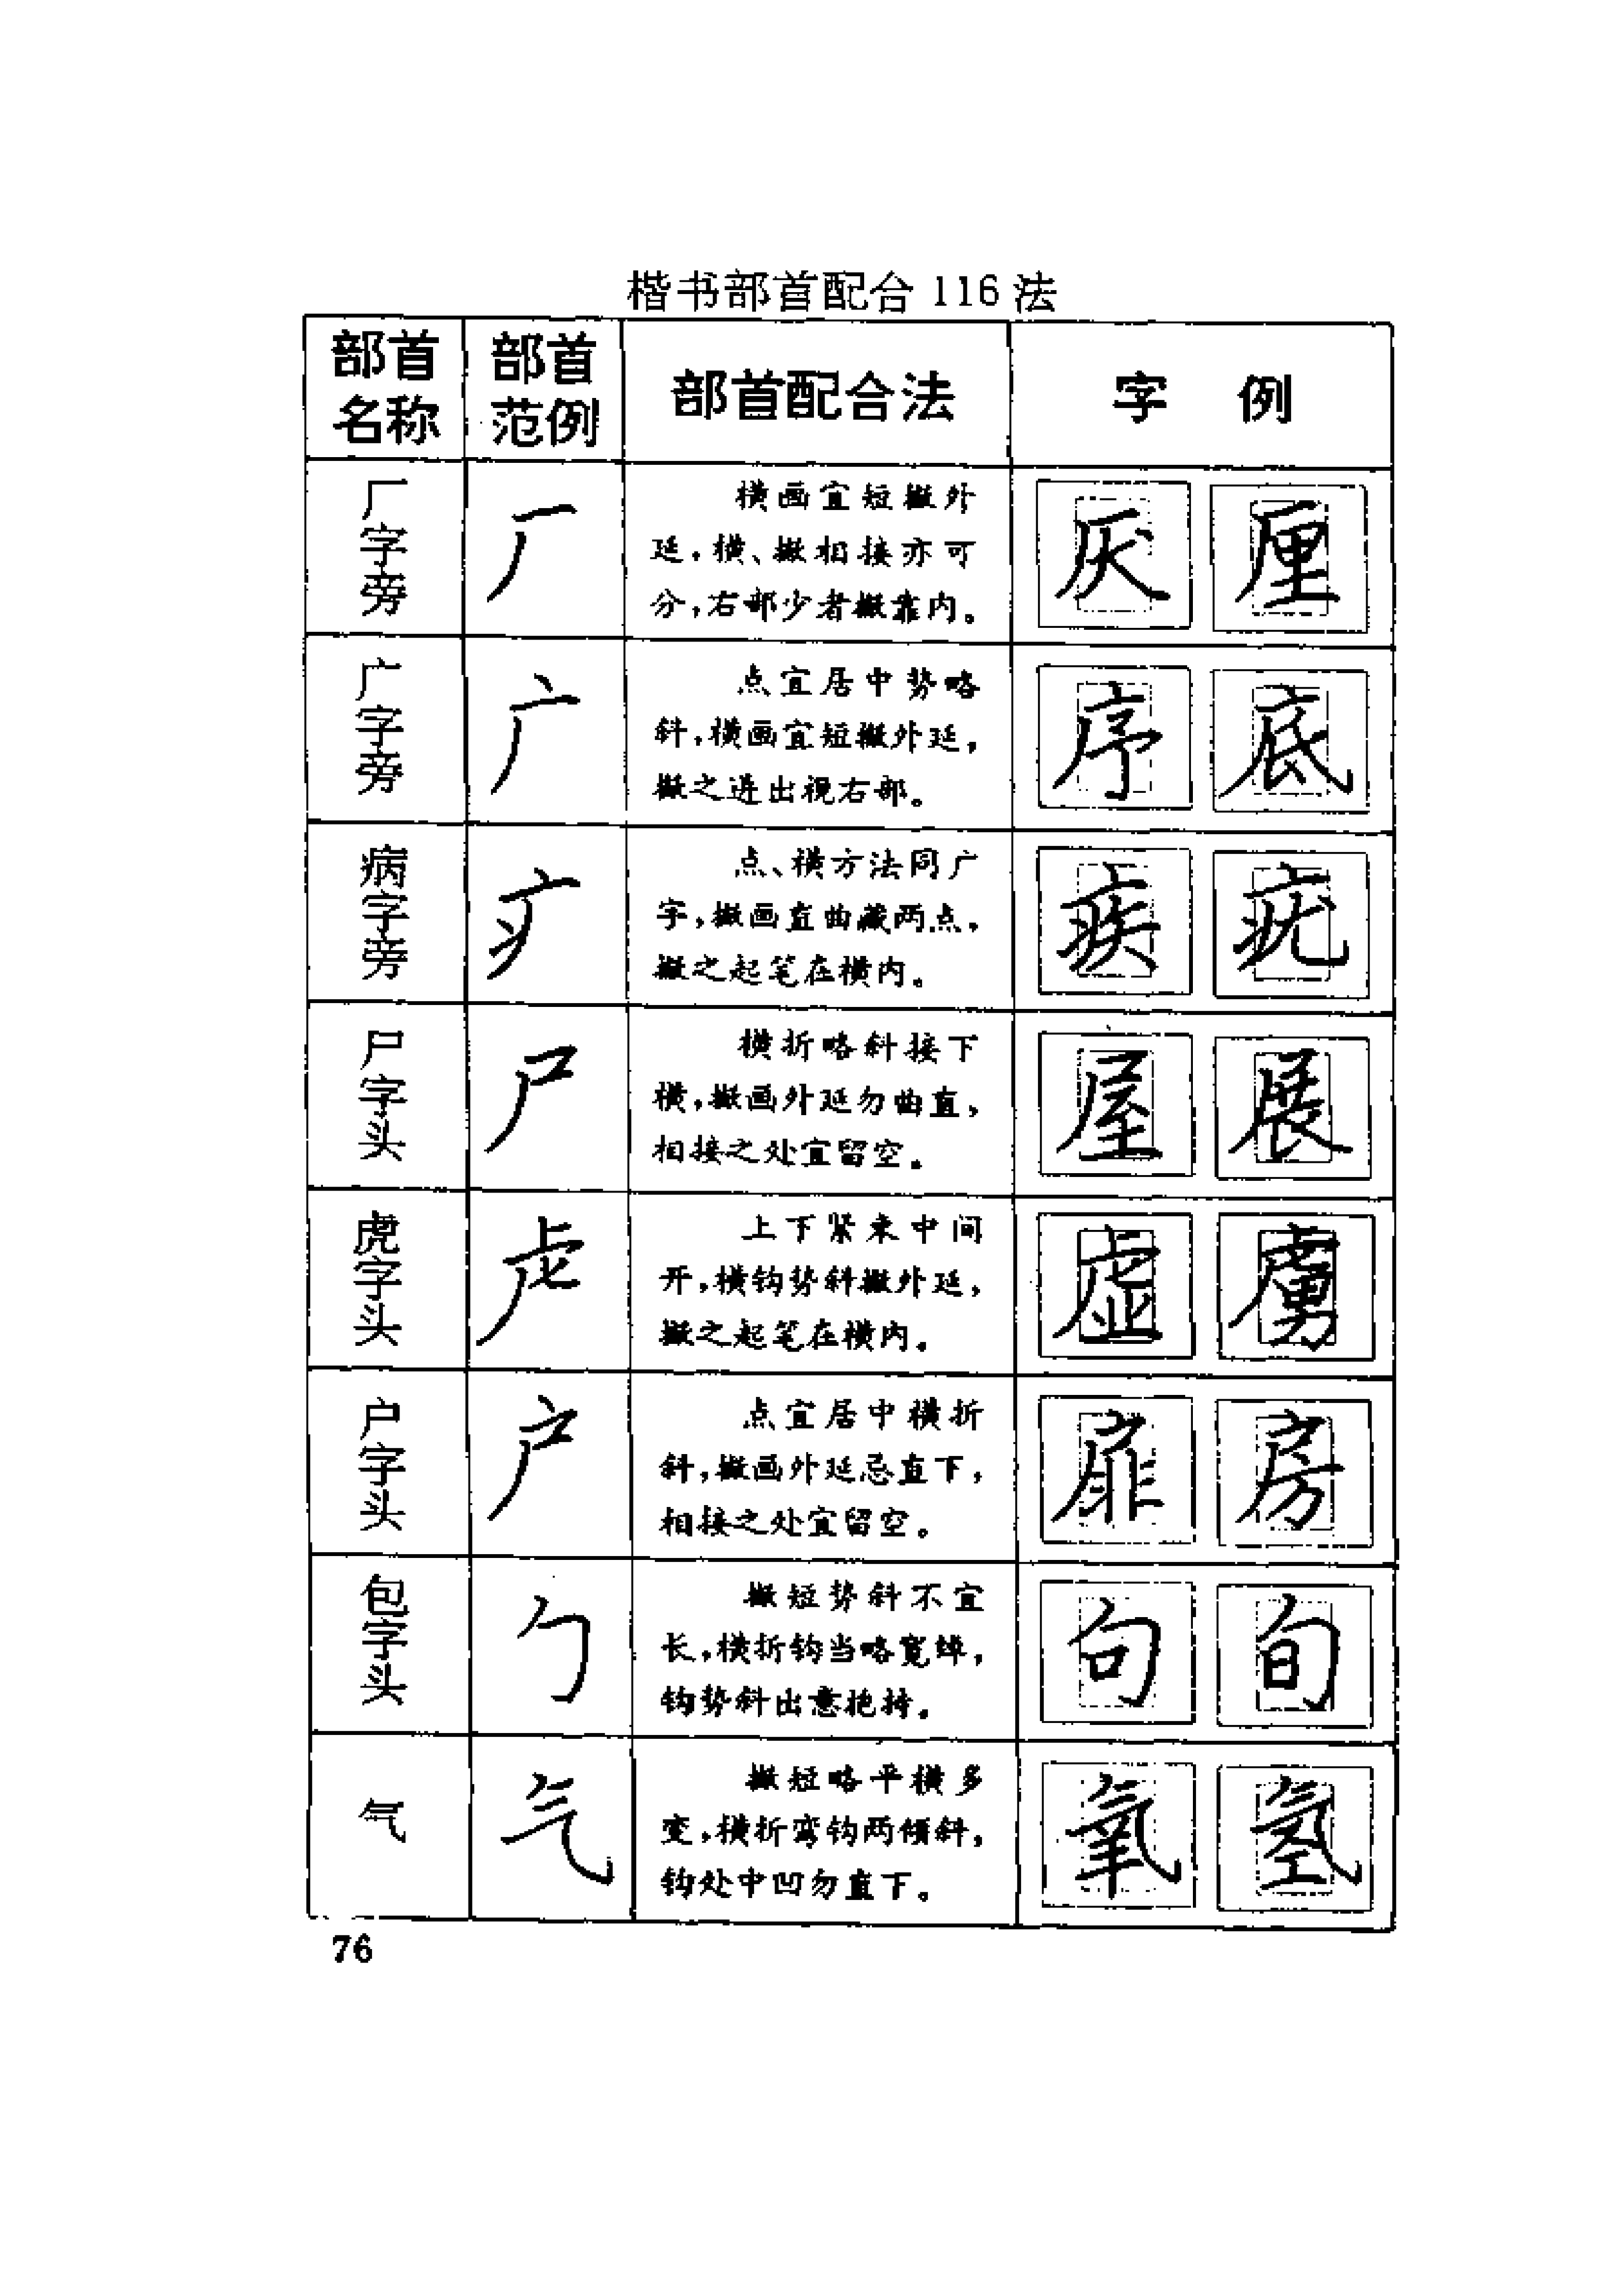 楷书部首配合 116 法
部首名称 部首范例 部首配合法 字 例
厂字旁
厂
横画宜短撇外
延,横、撇相接亦可
分,右部少者撇靠内。
厌 厘
广字旁
广
点宜居中势略
斜,横画宜短撇外延,
撇之进出视右部。
序 底
病字旁
疒
点、横方法同广
字,撇画直曲藏两点,
撇之起笔在横内。
疾 疣
尸字头
尸
横折略斜接下
横,撇画外延勿曲直,
相接之处宜留空。
屋 展
虎字头
虍
上下紧束中间
开,横钩势斜撇外延,
撇之起笔在横内。
虚 虏
户字头
户
点宜居中横折
斜,撇画外延忌直下,
相接之处宜留空。
扉 房
包字头
勹
撇短势斜不宜
长,横折钩当略宽绰,
钩势斜出意抱持。
句 旬
气
气
撇短略平横多
变,横折弯钩两倾斜,
钩处中凹勿直下。
氧 氢
76